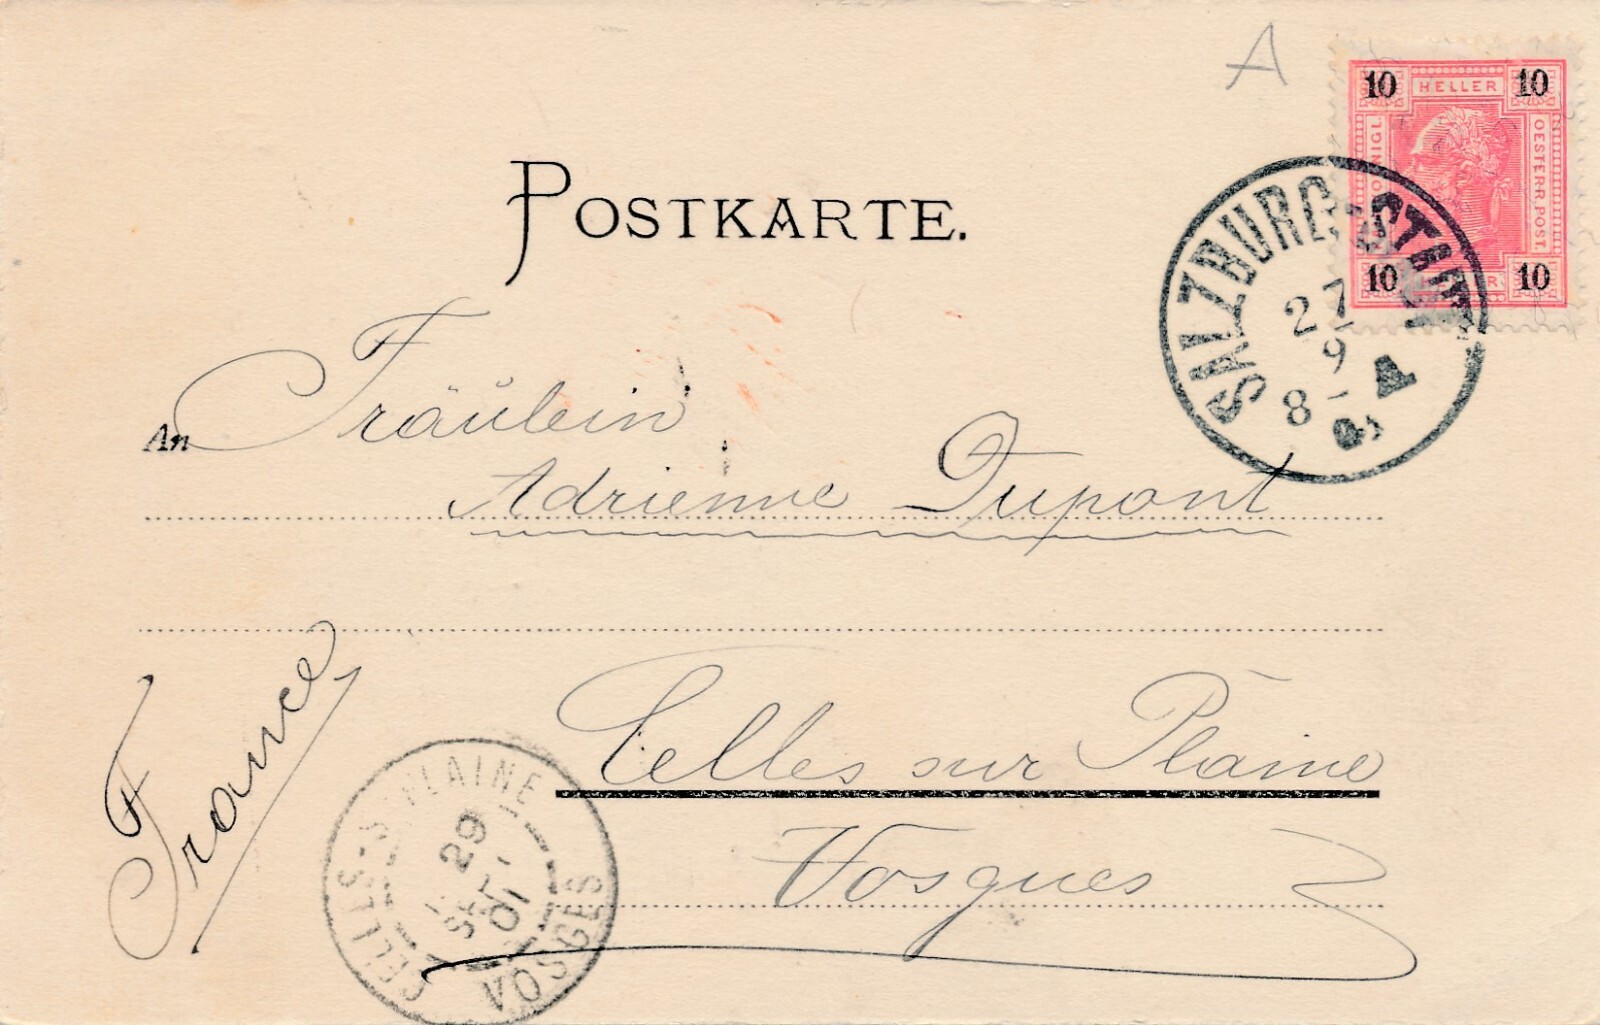 A
10 HELLER 10
KAIS. KÖNIGL.
OESTERR. POST
10 HELLER 10
POSTKARTE.
SALZBURG-STADT
27
9
8-
A
An Fräulein
Adrienne Dupont
France
Celles sur Plaine
Vosges
CELLES-S-PLAINE
29
SEPT
01
VOSGES